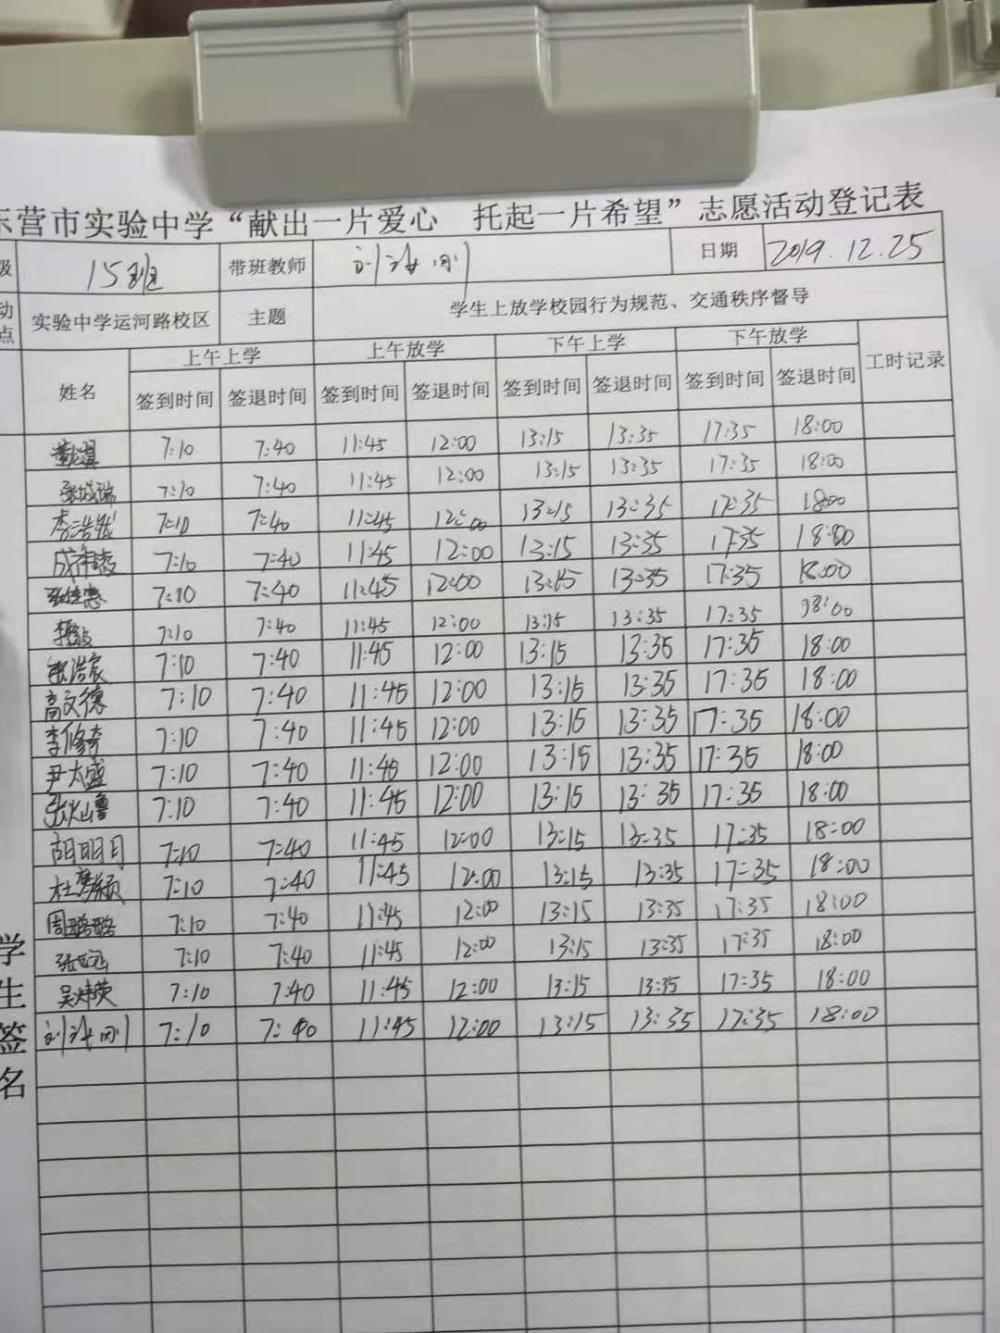 东营市实验中学“献出一片爱心 托起一片希望”志愿活动登记表
级 15班 带班教师 日期 2019.12.25
动点 实验中学运河路校区 主题 学生上放学校园行为规范、交通秩序督导
姓名 上午上学 上午放学 下午上学 下午放学 工时记录
签到时间 签退时间 签到时间 签退时间 签到时间 签退时间 签到时间 签退时间
7:10 7:40 11:45 12:00 13:15 13:35 17:35 18:00
张成瑞 7:10 7:40 11:45 12:00 13:15 13:35 17:35 18:00
7:10 7:40 11:45 12:00 13:15 13:35 17:35 18:00
7:10 7:40 11:45 12:00 13:15 13:35 17:35 18:00
7:10 7:40 11:45 12:00 13:15 13:35 17:35 18:00
7:10 7:40 11:45 12:00 13:15 13:35 17:35 18:00
7:10 7:40 11:45 12:00 13:15 13:35 17:35 18:00
高文德 7:10 7:40 11:45 12:00 13:15 13:35 17:35 18:00
李修奇 7:10 7:40 11:45 12:00 13:15 13:35 17:35 18:00
尹太盛 7:10 7:40 11:45 12:00 13:15 13:35 17:35 18:00
7:10 7:40 11:45 12:00 13:15 13:35 17:35 18:00
胡明月 7:10 7:40 11:45 12:00 13:15 13:35 17:35 18:00
7:10 7:40 11:45 12:00 13:15 13:35 17:35 18:00
周璐璐 7:10 7:40 11:45 12:00 13:15 13:35 17:35 18:00
7:10 7:40 11:45 12:00 13:15 13:35 17:35 18:00
7:10 7:40 11:45 12:00 13:15 13:35 17:35 18:00
7:10 7:40 11:45 12:00 13:15 13:35 17:35 18:00
学生签名